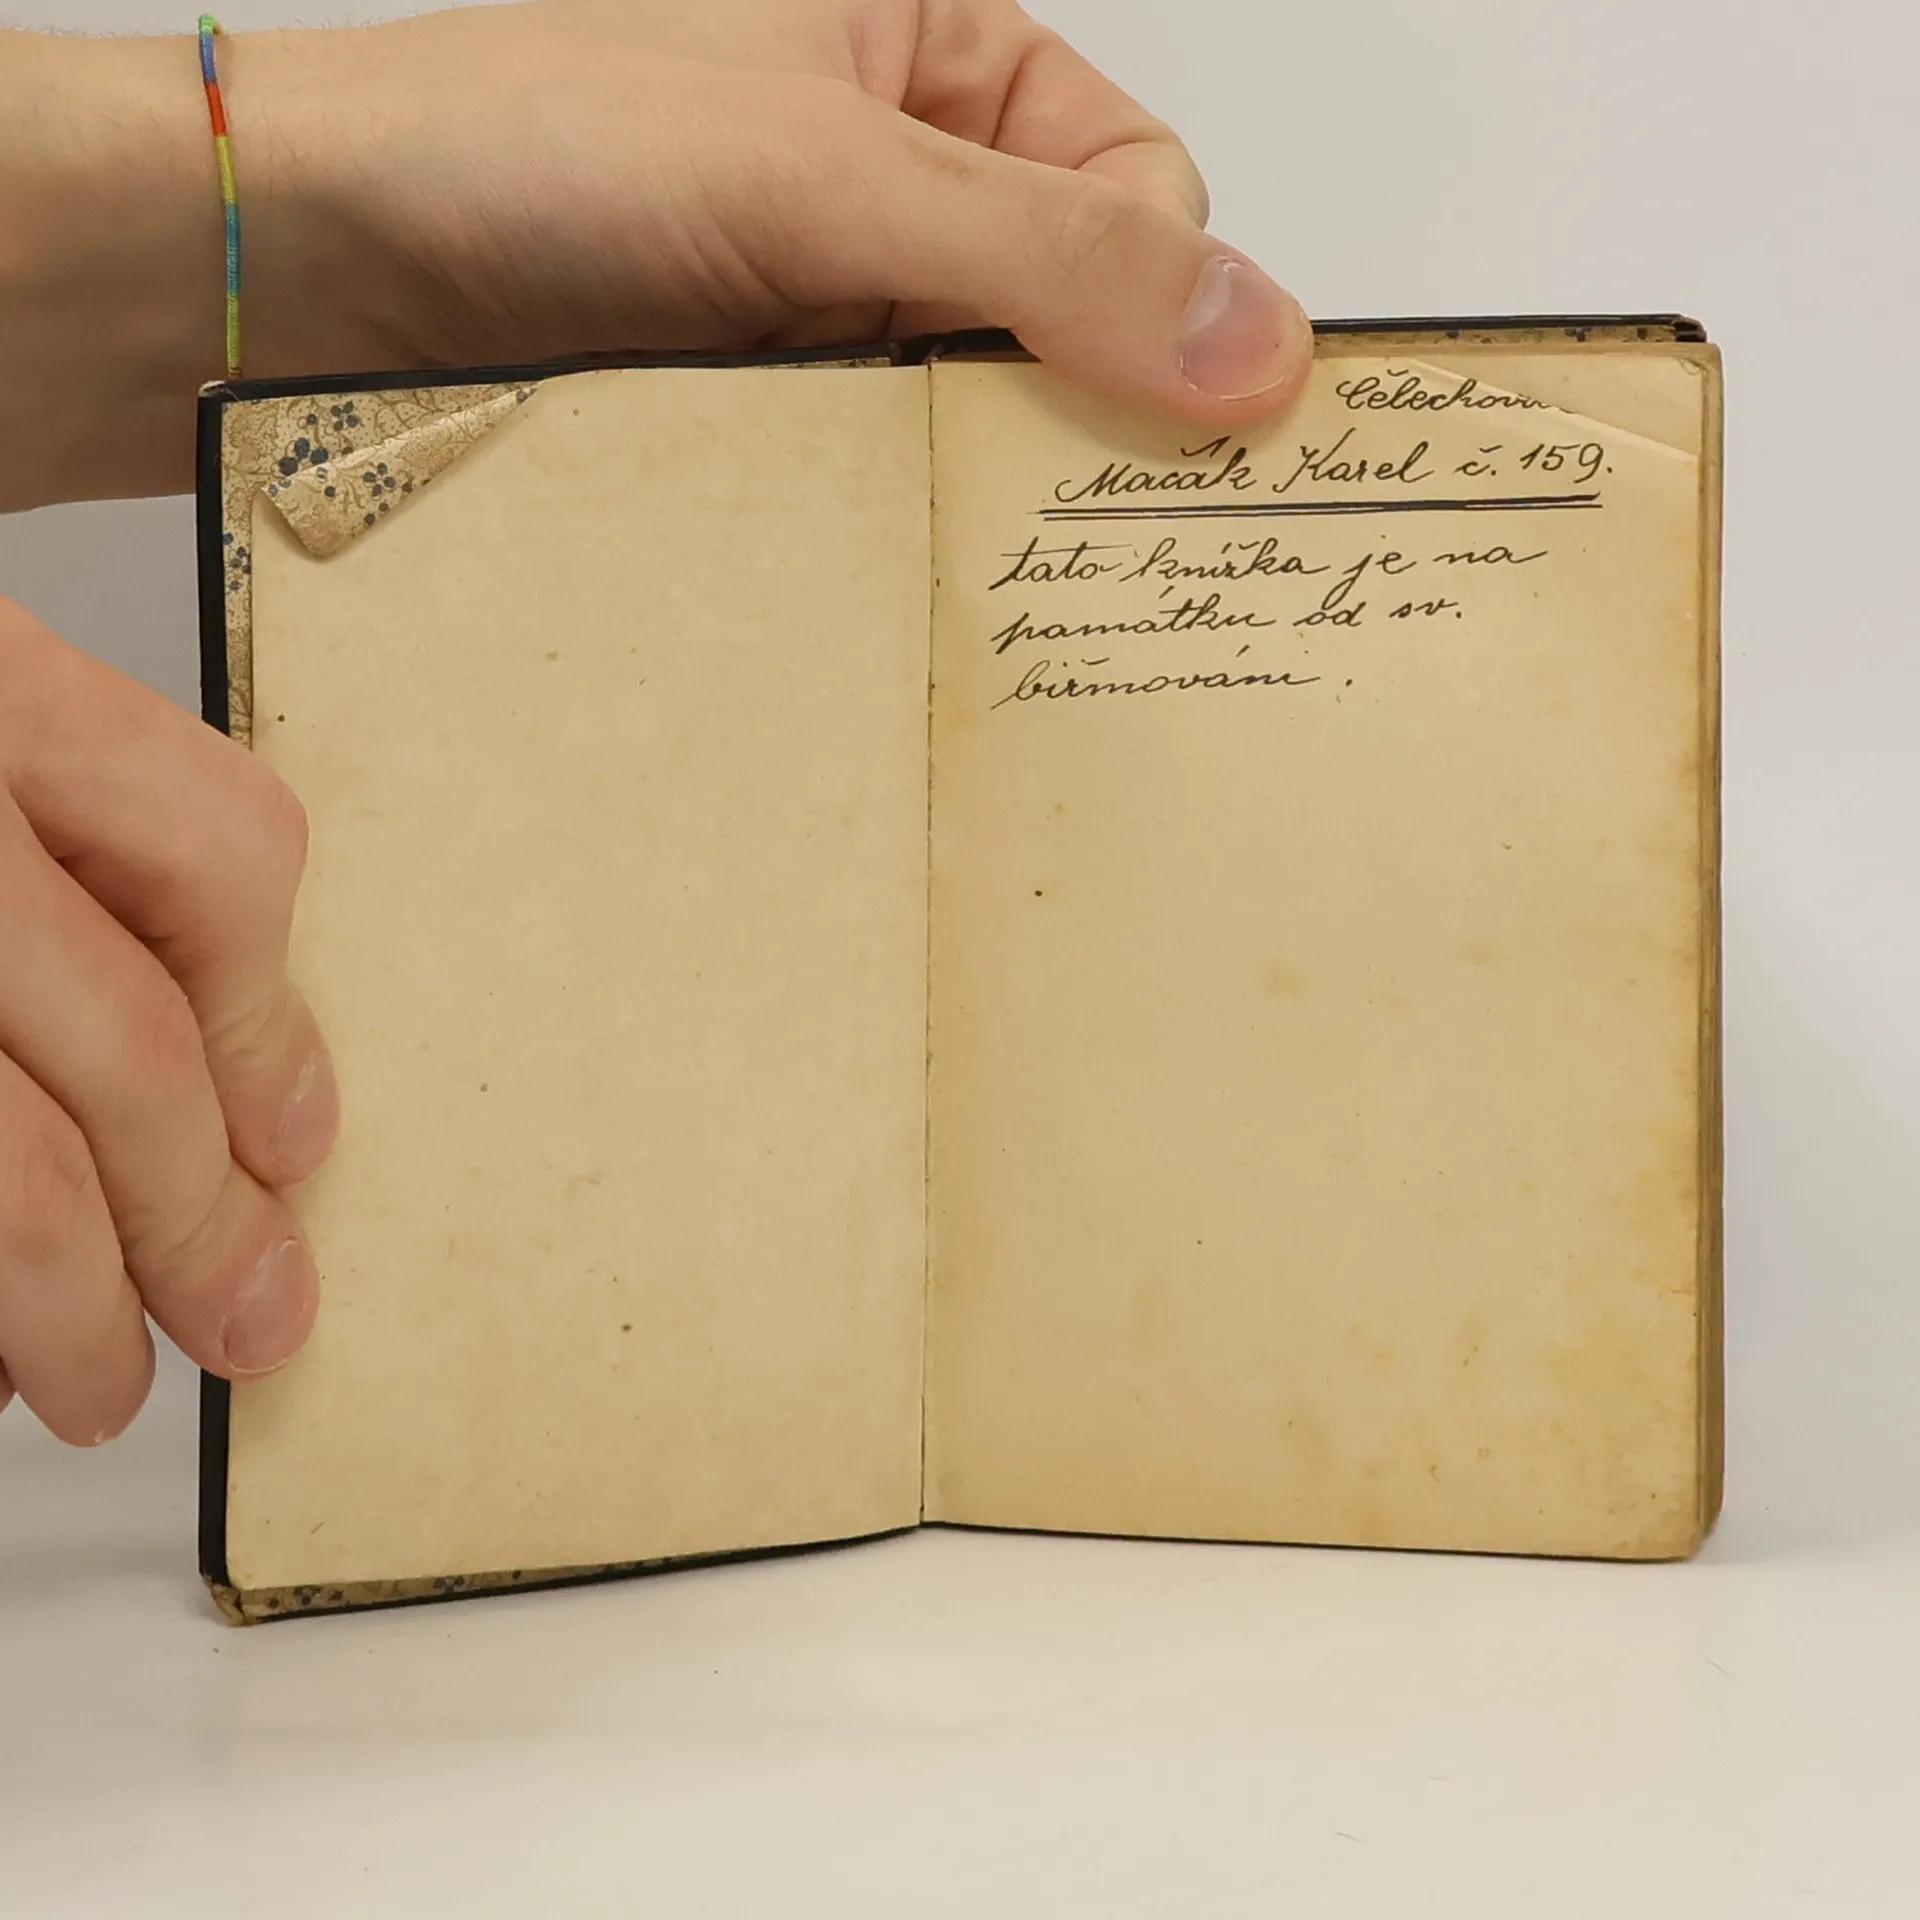 Mačák Karel č. 159.
tato knížka je na
památku od sv.
biřmováni .